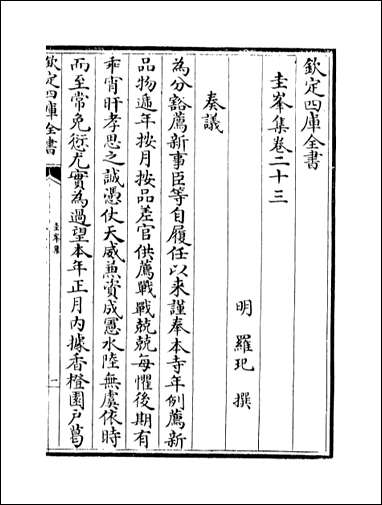 欽定四庫全書
圭峯集卷二十三
明 羅玘 撰
奏議
為分豁薦新事臣等自履任以來謹奉本寺年例薦新
品物遞年按月按品差官供薦戰戰兢兢每懼後期有
乖宵旰孝思之誠憑仗天威兼資成憲水陸無虞依時
而至常免愆尤實為過望本年正月內據香橙園户葛
欽定四庫全書
圭峯集
一